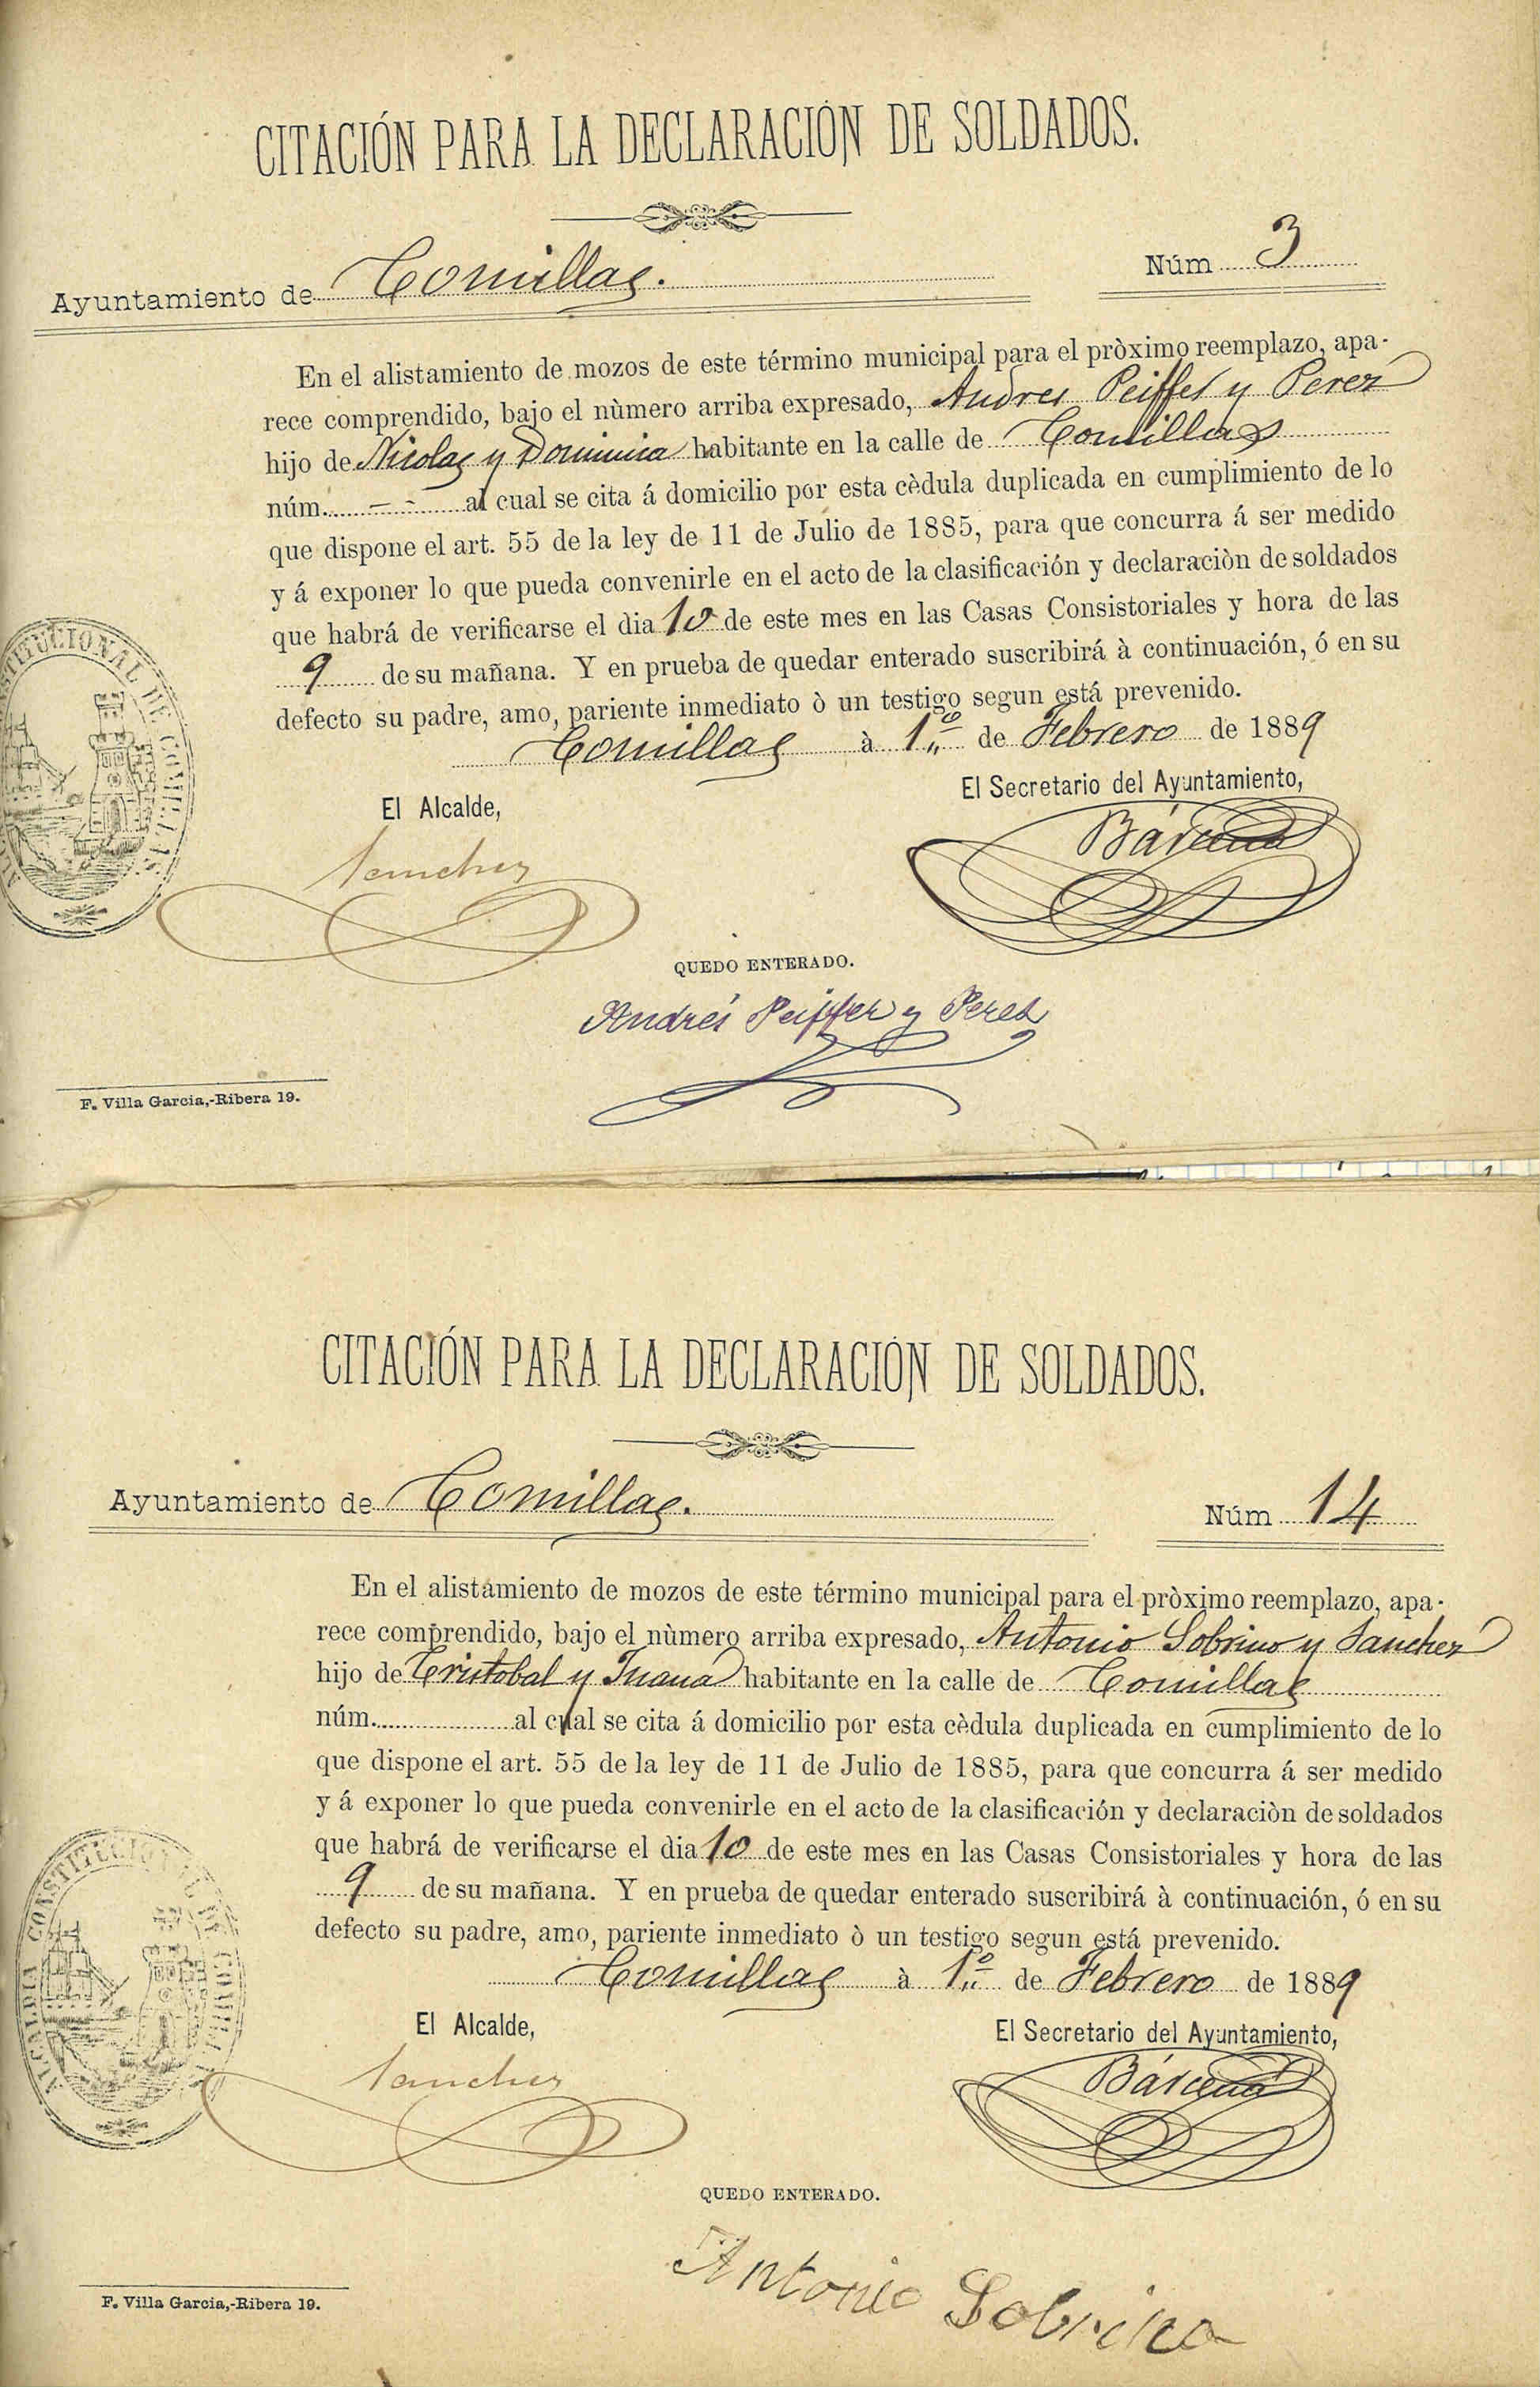 CITACIÓN PARA LA DECLARACIÓN DE SOLDADOS.
Ayuntamiento de Comillas.
Núm 3
En el alistamiento de mozos de este término municipal para el pròximo reemplazo, apa-
rece comprendido, bajo el nùmero arriba expresado, Andres Peiffer y Perez
hijo de Nicolas y Dominica habitante en la calle de Comillas
núm. - - al cual se cita á domicilio por esta cèdula duplicada en cumplimiento de lo
que dispone el art. 55 de la ley de 11 de Julio de 1885, para que concurra á ser medido
y á exponer lo que pueda convenirle en el acto de la clasificación y declaraciòn de soldados
que habrá de verificarse el dia 10 de este mes en las Casas Consistoriales y hora de las
9 de su mañana. Y en prueba de quedar enterado suscribirá à continuación, ó en su
defecto su padre, amo, pariente inmediato ò un testigo segun está prevenido.
Comillas à 1º de Febrero de 1889
El Alcalde,
El Secretario del Ayuntamiento,
Sanchez
Bárcena
QUEDO ENTERADO.
Andrés Peiffer y Perez
F. Villa Garcia,-Ribera 19.
CITACIÓN PARA LA DECLARACIÓN DE SOLDADOS.
Ayuntamiento de Comillas.
Núm 14
En el alistamiento de mozos de este término municipal para el pròximo reemplazo, apa-
rece comprendido, bajo el nùmero arriba expresado, Antonio Sobrino y Sanchez
hijo de Cristobal y Juana habitante en la calle de Comillas
núm. al cual se cita á domicilio por esta cèdula duplicada en cumplimiento de lo
que dispone el art. 55 de la ley de 11 de Julio de 1885, para que concurra á ser medido
y á exponer lo que pueda convenirle en el acto de la clasificación y declaraciòn de soldados
que habrá de verificarse el dia 10 de este mes en las Casas Consistoriales y hora de las
9 de su mañana. Y en prueba de quedar enterado suscribirá à continuación, ó en su
defecto su padre, amo, pariente inmediato ò un testigo segun está prevenido.
Comillas à 1º de Febrero de 1889
El Alcalde,
El Secretario del Ayuntamiento,
Sanchez
Bárcena
QUEDO ENTERADO.
Antonio Sobrino
F. Villa Garcia,-Ribera 19.